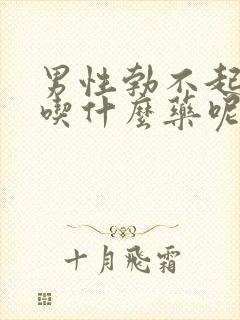 男性勃不起
喫什麼藥呢
十月飛霜